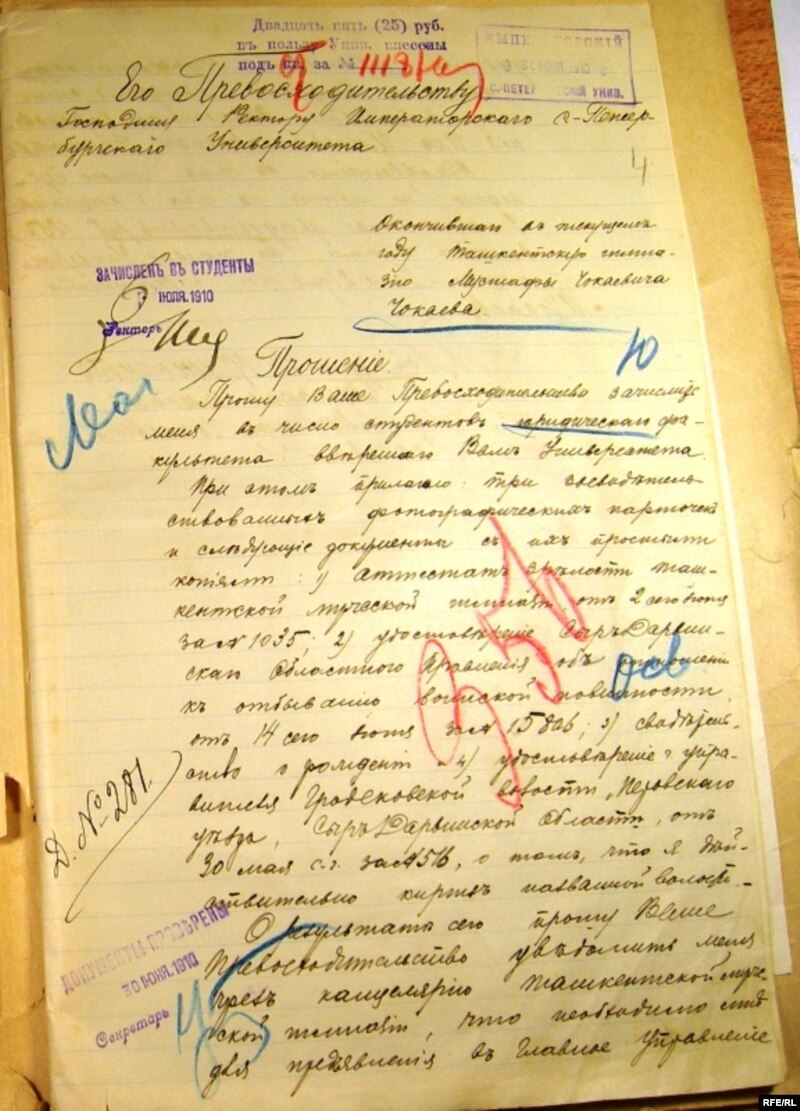 Двадцать пять (25) руб.
въ пользу Унив. внесены
подъ кв. за № 1113
С.-ПЕТЕРБУРГСКІЙ УНИВ.
Его Превосходительству
Господину Ректору Императорскаго С-Петер-
бургскаго Университета
4
Окончившаго въ текущемъ
году Ташкентскую гимна-
зію Мустафы Чокаевича
Чокаева
ЗАЧИСЛЕНЪ ВЪ СТУДЕНТЫ
ІЮЛЯ.1910
Ректоръ
Ю
Прошеніе.
Прошу Ваше Превосходительство зачислить
меня въ число студентовъ юридическаго фа-
культета ввѣреннаго Вамъ Университета.
При этомъ прилагаю: три засвидѣтель-
ствованныхъ фотографическихъ карточки
и слѣдующіе документы съ ихъ простыми
копіями: 1) аттестатъ зрѣлости Таш-
кентской мужской гимназіи, отъ 2 сего Іюня
за № 1035; 2) удостовѣреніе Сыръ-Дарьин-
скаго Областного Правленія объ отношеніи
къ отбыванію воинской повинности
отъ 14 сего Іюня за № 15826; 3) свидѣтель-
ство о рожденіи и 4) удостовѣреніе г. упра-
вителя Гродековской волости, Перовскаго
уѣзда, Сыръ-Дарьинской Области, отъ
30 мая с.г. за № 516, о томъ, что я дѣй-
ствительно киргизъ названной волости.-
О результатѣ сего прошу Ваше
Превосходительство увѣдомить меня
чрезъ канцелярію Ташкентской муж-
ской гимназіи, что необходимо мнѣ
для предъявленія въ Главное Управленіе
Д. № 281.
ДОКУМЕНТЫ ПРОВѢРЕНЫ
30 ІЮНЯ.1910
Секретарь
RFE/RL